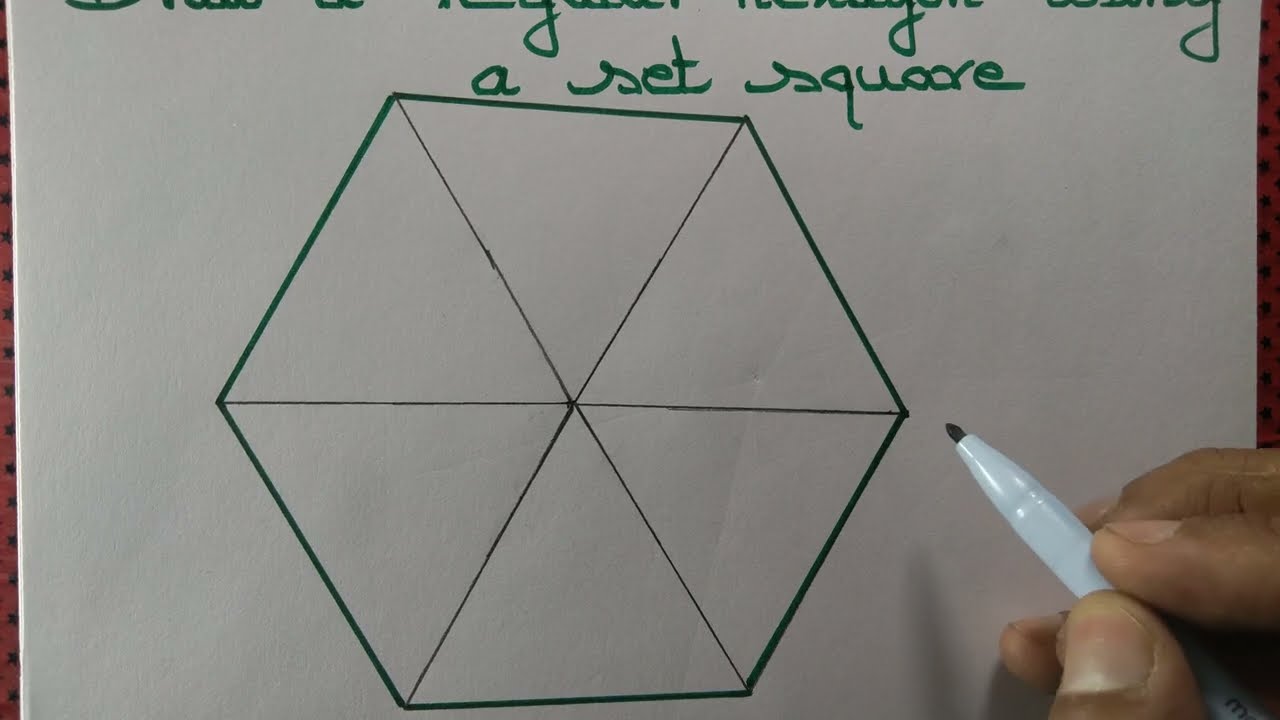 Draw a regular hexagon using
a set square